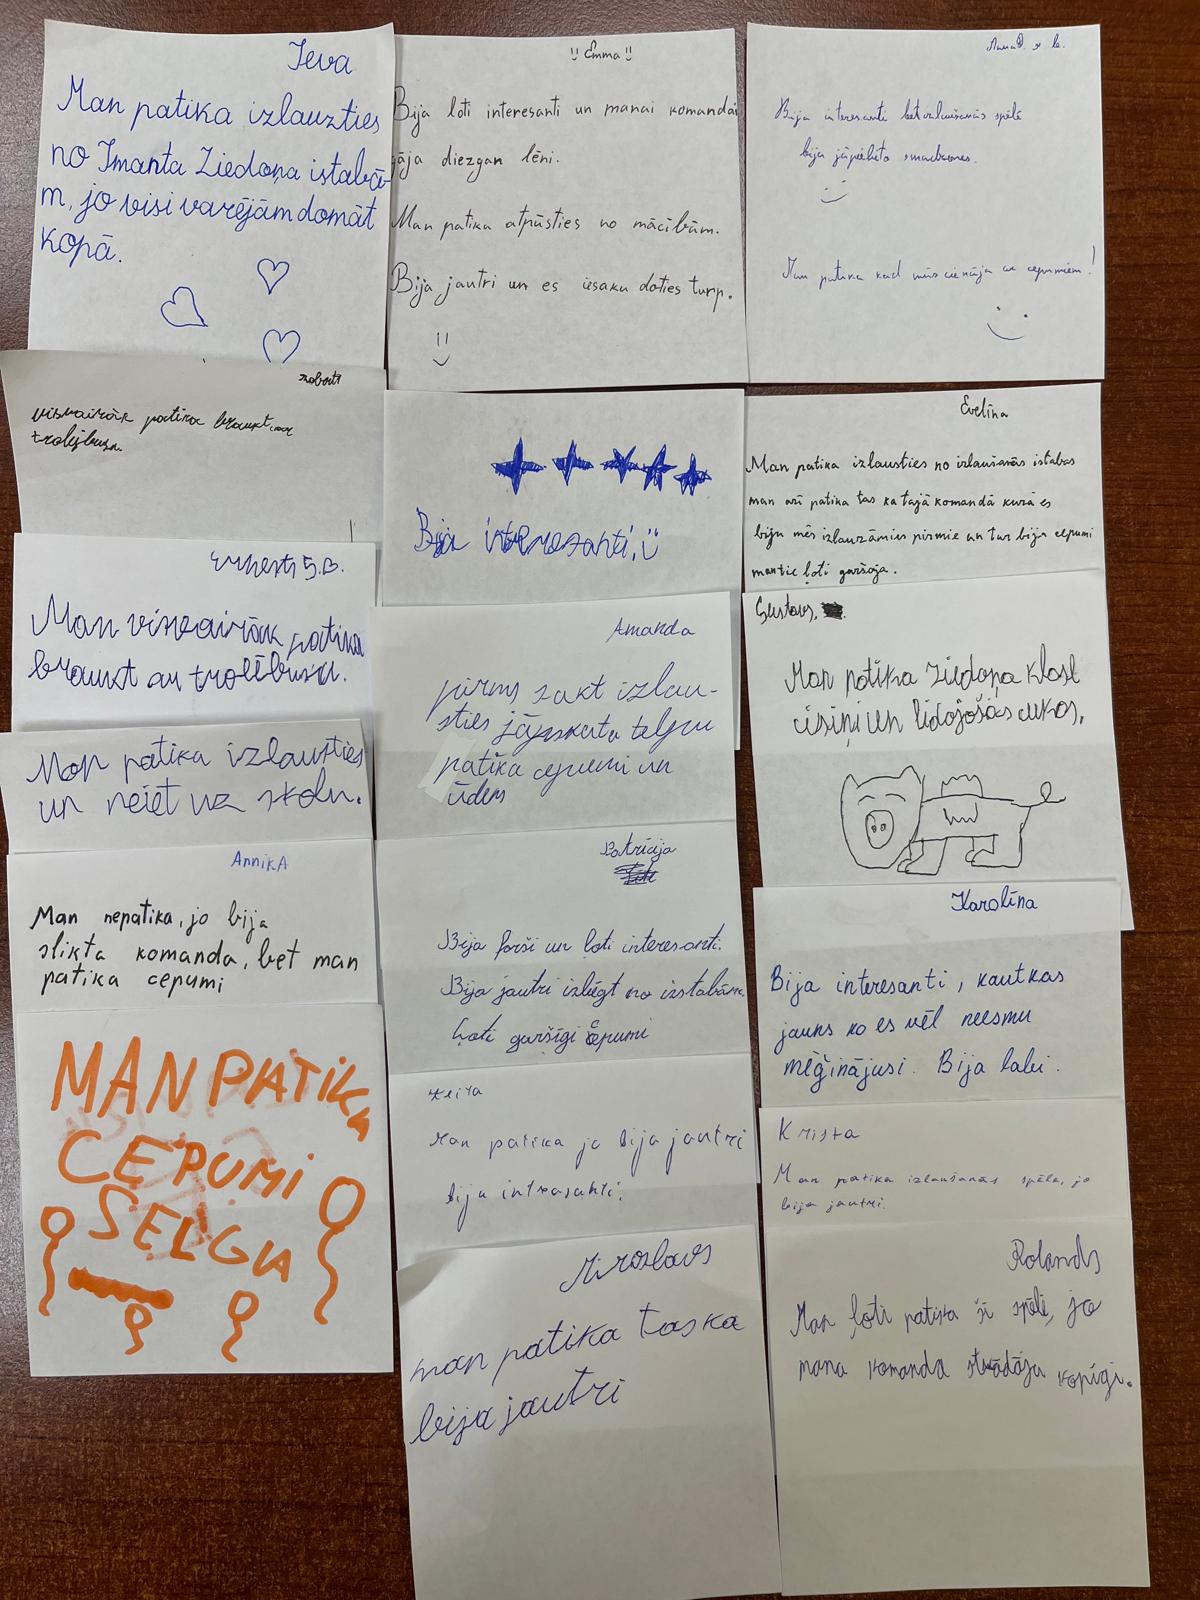 Ieva
Man patika izlauzties
no Imanta Ziedoņa istabā-
m, jo visi varējām domāt
kopā.
Emma
Bija ļoti interesanti un manai komandai
gāja diezgan lēni.
Man patika atpūsties no mācībām.
Bija jautri un es iesaku doties turp.
Bija interesanti bet izlaušanās spēlē
bija jāpielieto smadzenes.
Man patika kad mūs cienāja ar cepumiem!
roberts
visvairāk patika braukt
trolejbusu.
Bija interesanti.
Evelīna
Man patika izlausties no izlaušanās istabas
man arī patika tas ka tajā komandā kurā es
biju mēs izlauzāmies pirmie un tur bija cepumi
man tie ļoti garšoja.
Ernests 5.B.
Man visvairāk patika
braukt ar trolēbusu.
Man patika izlausties
un neiet uz skolu.
Amanda
pirms sākt izlau-
sties jāpskata telpu
patika cepumi un
ūdens
Gustavs,
Man patika Ziedoņa klasē
cīsiņi un lidojošās cūkas.
AnnikA
Man nepatika, jo bija
slikta komanda, bet man
patika cepumi
Patrīcija
Bija forši un ļoti interesanti.
Bija jautri izlēgt no izstabām.
Ļoti garšīgi cepumi
Karolīna
Bija interesanti, kautkas
jauns ko es vēl neesmu
mēģinājusi. Bija labi.
MAN PATIKA
CEPUMI
SELGA
Keita
Man patika jo bija jautri
bija intrasanti.
Krista
Man patika izlaušanās spēle, jo
bija jautri.
Miroslavs
man patika tas ka
bija jautri
Rolands
Man ļoti patika šī spēle, jo
mana komanda strādāja kopīgi.